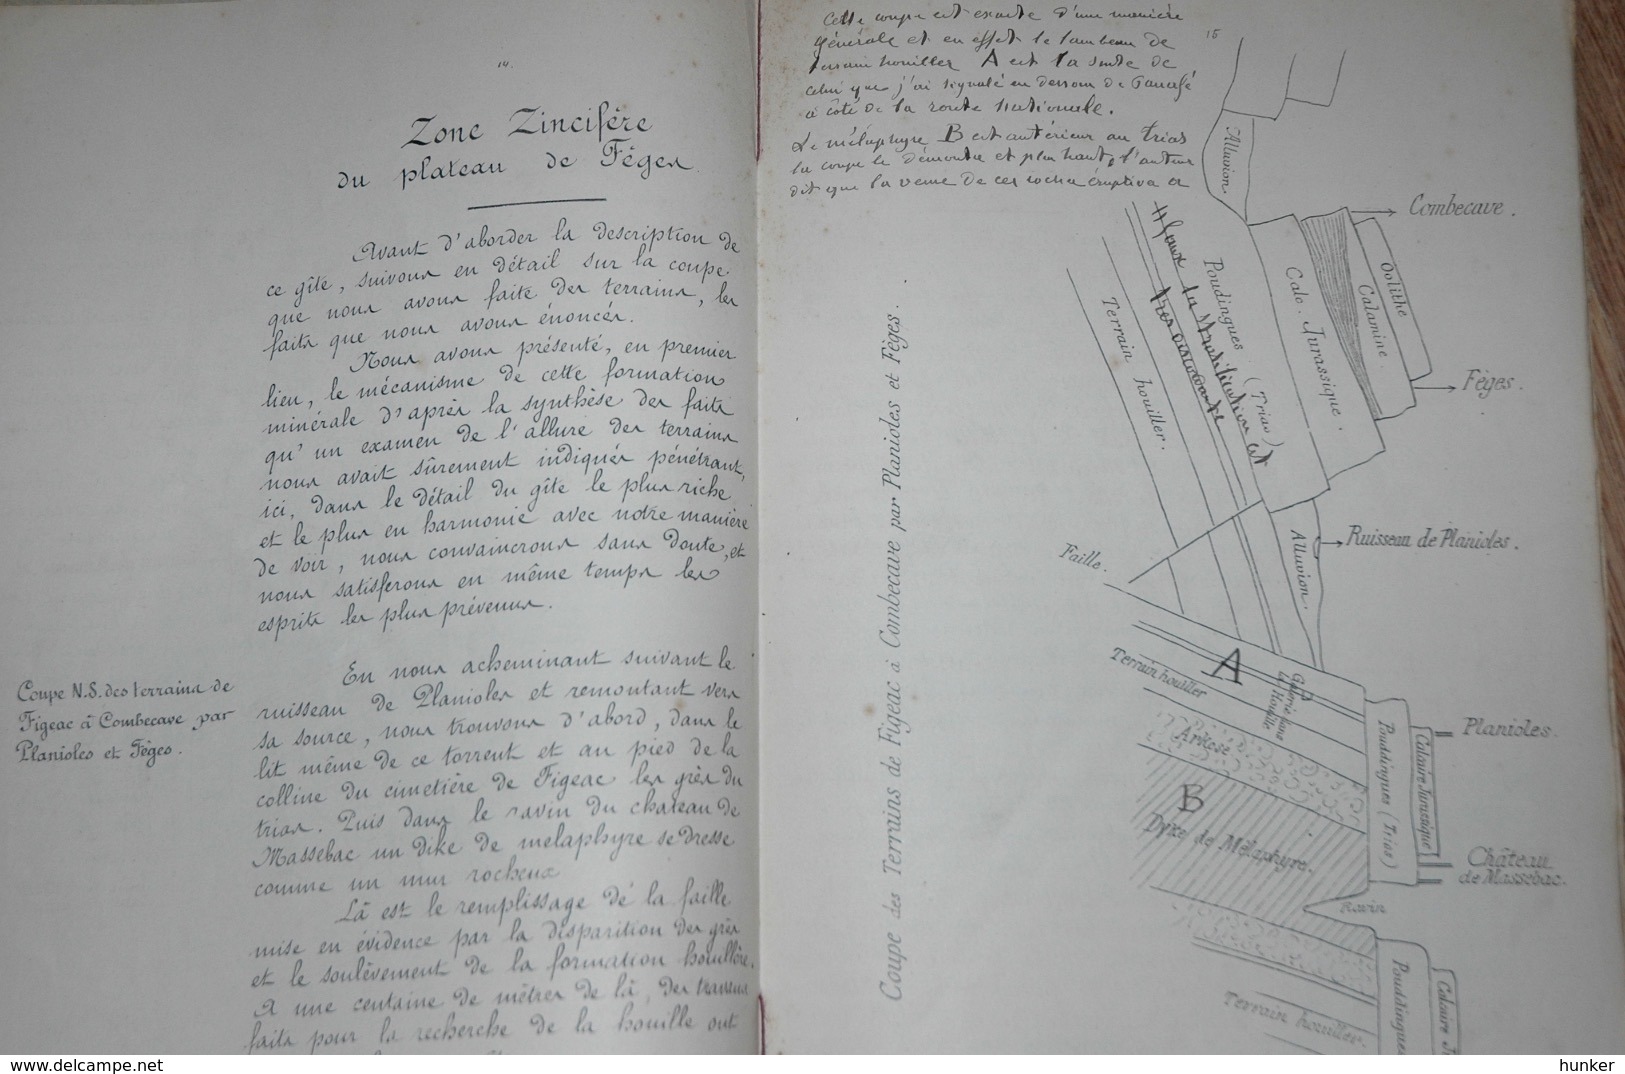 14.
Zone Zincifère
du plateau de Fèges.
Avant d'aborder la description de
ce gîte, suivons en détail sur la coupe
que nous avons faite des terrains, les
faits que nous avons énoncés.
Nous avons présenté, en premier
lieu, le mécanisme de cette formation
minérale d'après la synthèse des faits
qu'un examen de l'allure des terrains
nous avait sûrement indiqués pénétrant,
ici, dans le détail du gîte le plus riche
et le plus en harmonie avec notre manière
de voir, nous convaincrons sans doute, et
nous satisferons en même temps les
esprits les plus prévenus.
Coupe N.S. des terrains de
Figeac à Combecave par
Planioles et Fèges.
En nous acheminant suivant le
ruisseau de Planioles et remontant vers
sa source, nous trouvons d'abord, dans le
lit même de ce torrent et au pied de la
colline du cimetière de Figeac les grès du
trias. Puis dans le ravin du chateau de
Massebac un dike de mélaphyre se dresse
comme un mur rocheux
Là est le remplissage de la faille
mise en évidence par la disparition des grès
et le soulèvement de la formation houillère.
A une centaine de mètres de là, des travaux
faits pour la recherche de la houille ont
15
Cette coupe est exacte d'une manière
générale et en effet le lambeau de
terrain houiller A est la suite de
celui que j'ai signalé en dessous de
à côté de la route nationale.
Le mélaphyre B est antérieur au trias
la coupe le démontre et plus haut, l'auteur
dit que la venue de ces roches éruptives a
Coupe des Terrains de Figeac à Combecave par Planioles et Fèges.
Alluvion
Combecave.
Oolithe
Calamine.
Calc. Jurassique.
Fèges.
Poudingues (Trias)
Terrain houiller.
Ruisseau de Planioles.
Alluvion.
Faille.
A
Terrain houiller
Arkose
B
Dyke de Mélaphyre.
Poudingues (Trias)
Calcaire Jurassique
Planioles.
Château
de Massebac.
Ravin
Terrain houiller.
Poudingues
Calcaire J
hunker